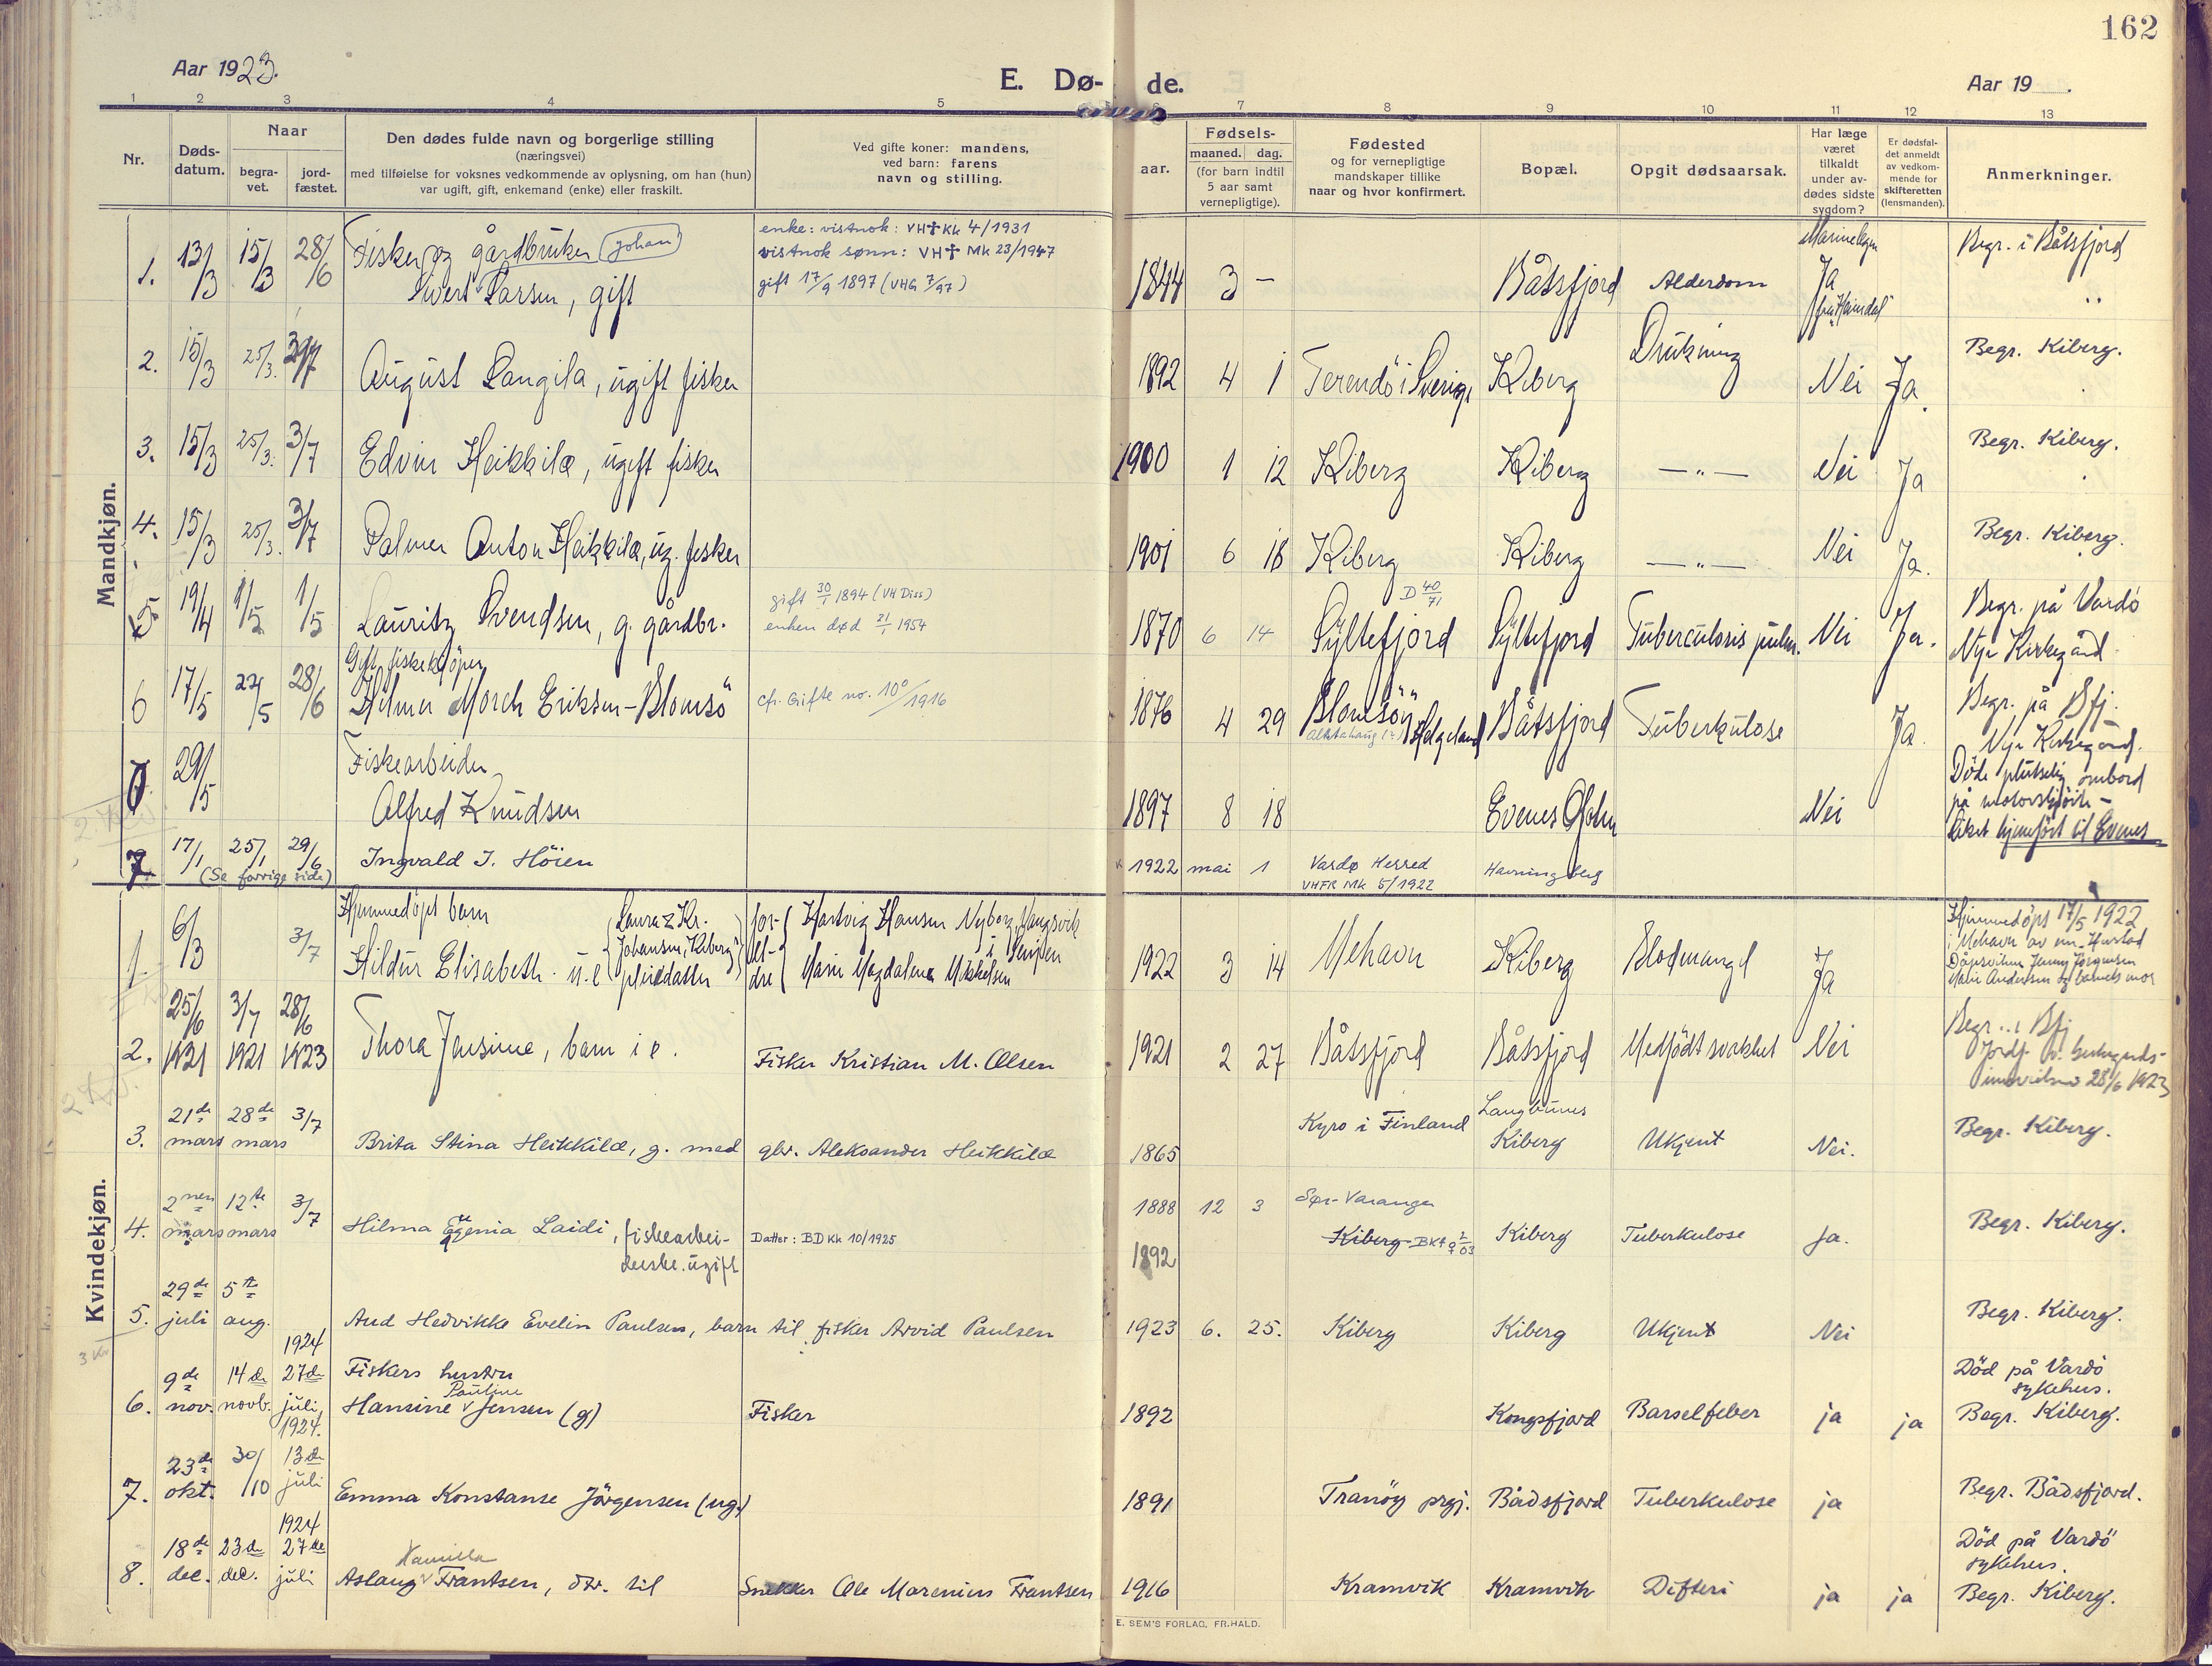 162
Aar 1923.
E. Dø- de.
Aar 19 .
1 2 3 4 5 6 7 8 9 10 11 12 13
Nr.
Døds-
datum.
Naar
begra-
vet.
jord-
fæstet.
Den dødes fulde navn og borgerlige stilling
(næringsvei)
med tilføielse for voksnes vedkommende av oplysning, om han (hun)
var ugift, gift, enkemand (enke) eller fraskilt.
Ved gifte koner: mandens,
ved barn: farens
navn og stilling.
aar.
Fødsels-
maaned. dag.
(for barn indtil
5 aar samt
vernepligtige).
Fødested
og for vernepligtige
mandskaper tillike
naar og hvor konfirmert.
Bopæl.
Opgit dødsaarsak.
Har læge
været
tilkaldt
under av-
dødes sidste
sygdom?
Er dødsfal-
det anmeldt
av vedkom-
mende for
skifteretten
(lensmanden).
Anmerkninger.
Mandkjøn.
1. 13/3 15/3 28/6 Fisker og gårdbruker Johan
Sivert Larsen, gift
enke: vistnok: VH✝Kk 4/1931
vistnok sønn: VH✝ Mk 23/1947
gift 17/9 1897 (VHG 7/97)
1844 3 – Båtsfjord Alderdom
Marinelegen
Ja
fra "Heimdal"
Begr. i Båtsfjord
2. 15/3 25/3. 3/7 August Langila, ugift fisker
1892 4 1 Terendö i Sverige Kiberg Drukning Nei Ja. Begr. Kiberg.
3. 15/3 25/3. 3/7 Edvin Heikkilæ, ugift fisker
1900 1 12 Kiberg Kiberg —"— Nei Ja Begr. Kiberg.
4. 15/3 25/3. 3/7 Palmer Anton Heikkilæ, ug. fisker
1901 6 18 Kiberg Kiberg —"— Nei Ja. Begr. Kiberg.
5 19/4 1/5 1/5 Lauritz Svendsen, g. gårdbr.
gift 30/1 1894 (VH Diss)
enken død 21/1 1954
1870 6 14 D 40/71
Syltefjord Syltefjord Tuberculosis pulm. Nei Ja. Begr. på Vardö
Nye Kirkegård
6 17/5 22/5 28/6 Gift fiskekjøper
Hilmer Morch Eriksen-Blomsö
cfr. Gifte no. 10⁰/1916
1876 4 29 Blomsöy
Helgeland Båtsfjord Tuberkulose Ja. Begr. på Bfj.
Nye Kirkegård.
7 29/5 Fiskearbeider
Alfred Knudsen
1897 8 18 Evenes Ofoten Nei
Döde plutselig ombord
på motorskjöite –
Liket hjemført til Evenes
7. 17/1 25/1 29/6 Ingvald J. Höien
(Se forrige side)
1922 mai 1 Vardø Herred Havningberg
VHFR Mk 5/1922
Kvindekjøn.
1. 6/3 3/7 Hjemmedöpt barn
Hildur Elisabeth. u. e
Laura & Kr.
Johansen, Kiberg's
pleiedatter
for-
el-
dre
Hartvig Hansen Nyberg, Vangsvik
i Senjen
Marie Magdalena Mikkelsen
1922 3 14 Mehavn Kiberg Blodmangel Ja
Hjemmedöpt 17/5 1922
i Mehavn av em. Hustad
Dåpsvitner Jenny Jörgensen
Marie Andersen og barnets mor
2. 25/6 1921 3/7 1921 28/6 1923 Thora Jensine, barn i e.
Fisker Kristian M. Olsen
1921 2 27 Båtsfjord Båtsfjord Medfödt svakhet Nei
Begr. i Bfj
Jordf. v.
28/6 1923
3. 21de mars 28de mars 3/7 Brita Stina Heikkilæ, g. med gbr. Aleksander Heikkilæ
1865 Kyro i Finland Langbunes
Kiberg Ukjent Nei. Begr. Kiberg.
4. 2nen mars 12te mars 3/7 Hilma Eugenia Laidi, fiskearbei-
derske. ugift
Datter: BD Kk 10/1925
1888 12 3 Sør-Varanger
1892 Kiberg BKf ♀ 2/03 Kiberg Tuberkulose Ja. Begr. Kiberg.
5. 29de juli 5te aug. Aud Hedvikke Evelin Paulsen, barn til fisker Arvid Paulsen
1923 6. 25. Kiberg Kiberg Ukjent Nei Begr. Kiberg.
6. 9de nov. 14de novb. 1924 27de juli Fiskers hustru
Pauline
Hansine v Jensen (g) Fisker
1892 Kongsfjord Barselfeber ja ja Död på Vardö
sykehus.
Begr. Kiberg.
7. 23de okt. 30/10 1924. 13de juli Emma Konstanse Jörgensen (ug.)
1891 Tranöy prgj. Bådsfjord Tuberkulose ja Begr. Bådsfjord.
8. 18de dec. 23de dec. 1924 27de juli Kamilla
Aslaug v Frantsen, dtr. til Snekker Ole Marenius Frantsen
1916 Kramvik Kramvik Difteri ja ja Död på Vardö
sykehus.
Begr. Kiberg.
E. SEM'S FORLAG, FR.HALD.